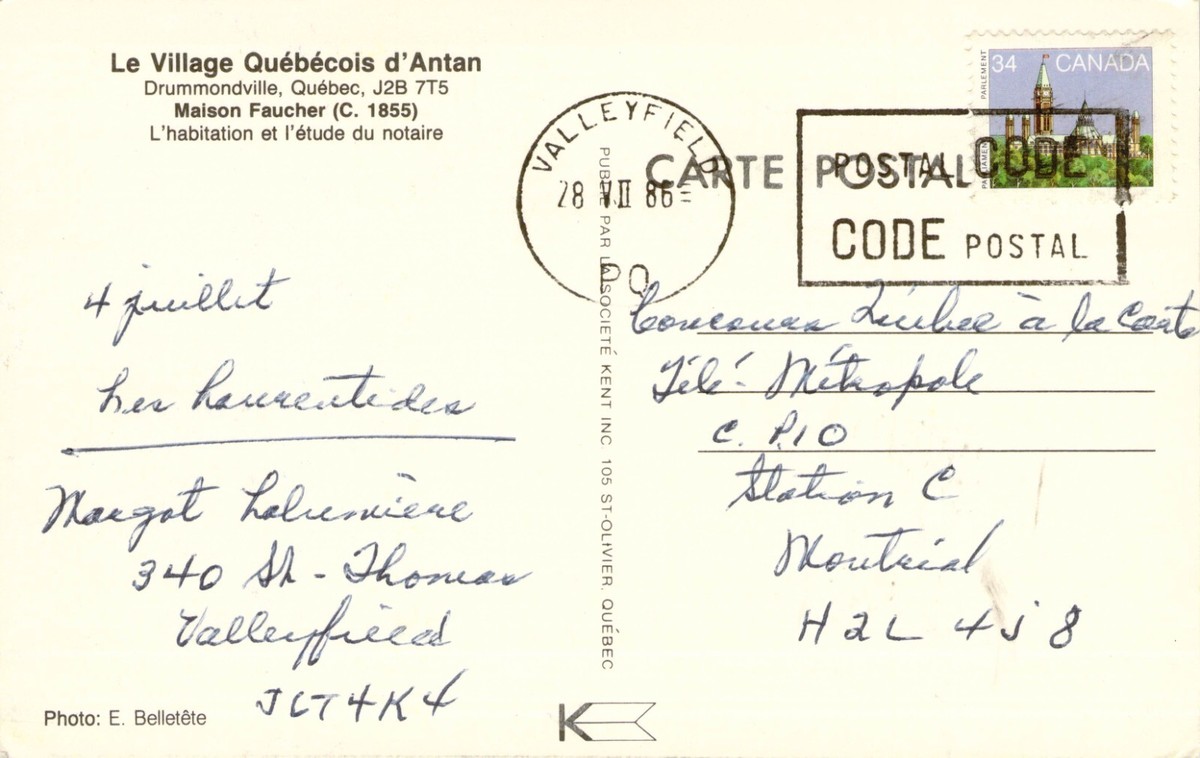 Le Village Québécois d'Antan
Drummondville, Québec, J2B 7T5
Maison Faucher (C. 1855)
L'habitation et l'étude du notaire
4 juillet
Les Laurentides
Margot Lalumière
340 St-Thomas
Valleyfield
J6T4K4
Photo: E. Belletête
PUBLIÉ PAR LA SOCIÉTÉ KENT INC 105 ST-OLIVIER, QUÉBEC
K
VALLEYFIELD
28 VII 86
PQ
CARTE POSTALE
POSTAL CODE
CODE POSTAL
PARLEMENT
PARLIAMENT
34 CANADA
Concours Québec à la Carte
Télé-Métropole
C.P.10
Station C
Montréal
H2L 4J8